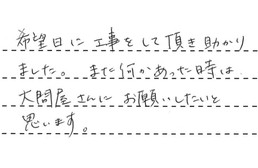 希望日に工事をして頂き助かり
ました。また何かあった時は
大問屋さんにお願いしたいと
思います。